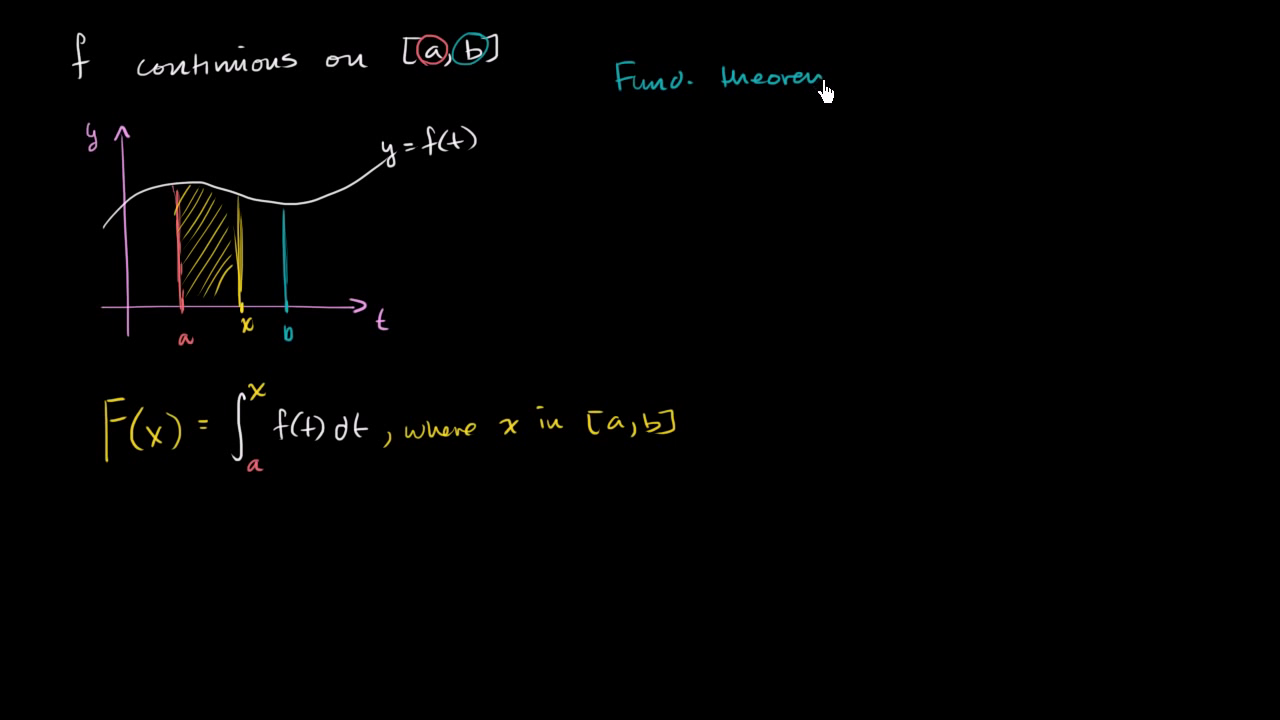 f continuous on [a, b]
Fund. theorem
y
y = f(t)
t
a
x
b
F(x) = ∫ₐˣ f(t) dt, where x in [a, b]